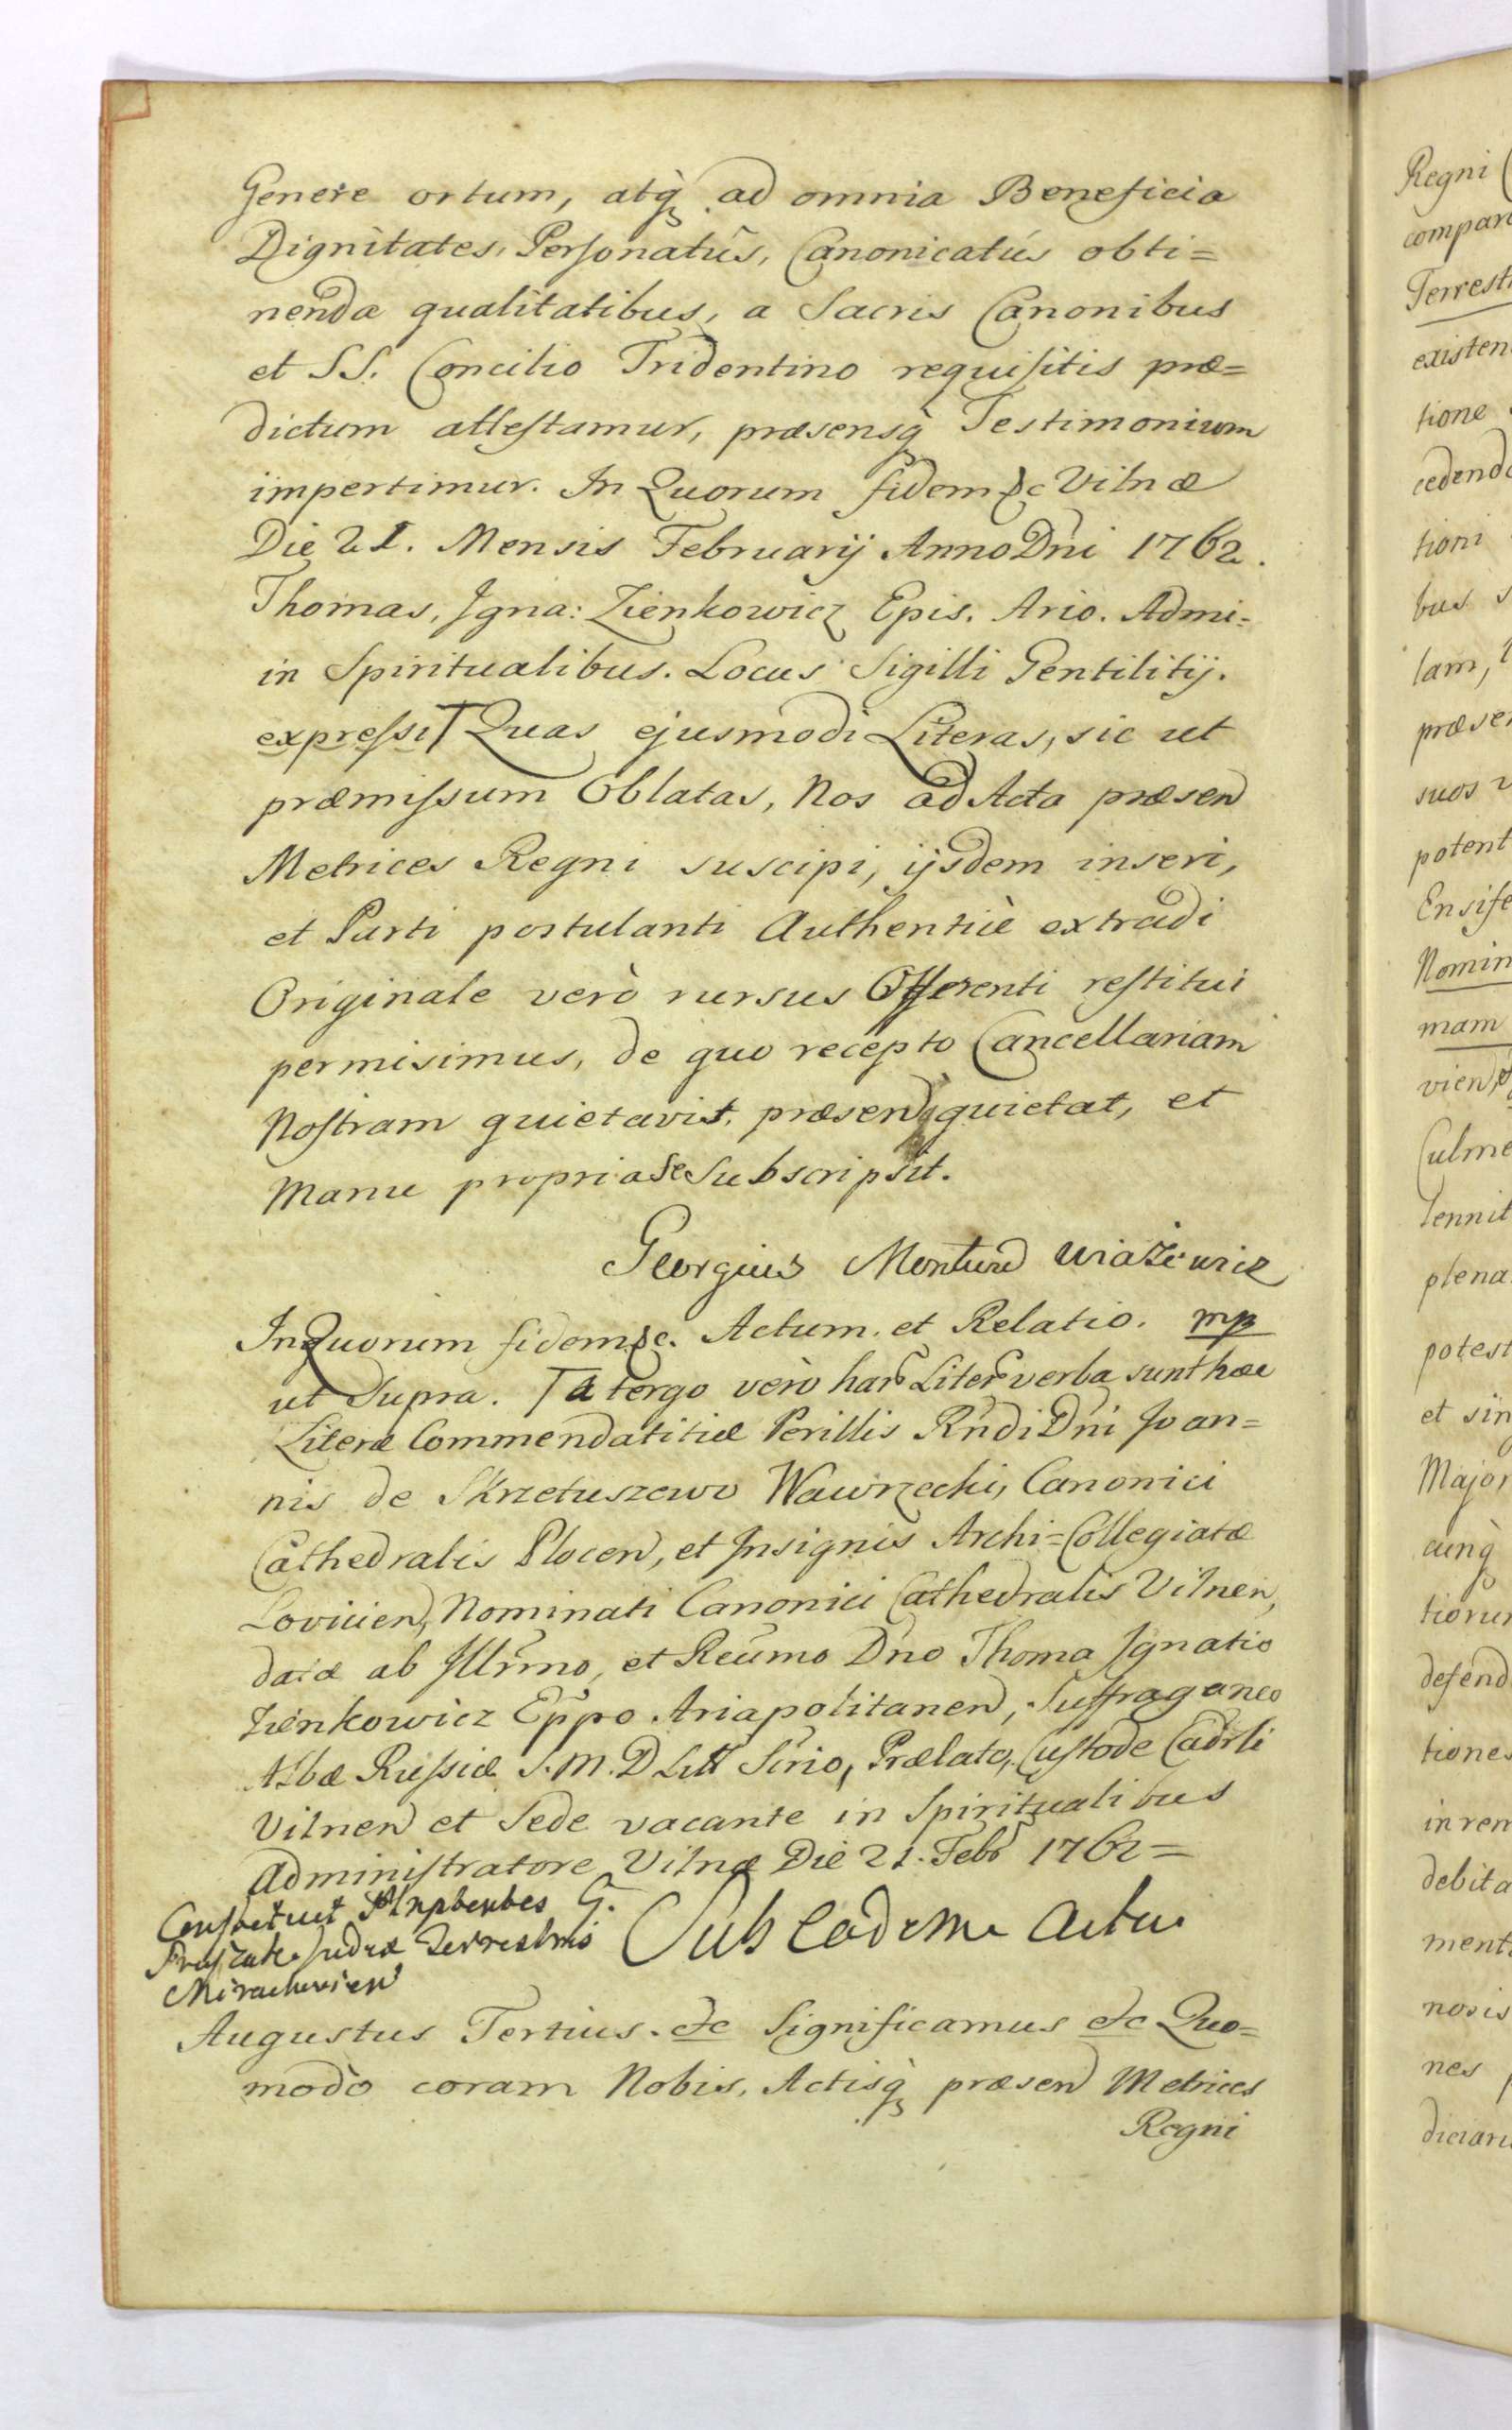 Genere ortum, atq̀ ad omnia Beneficia
Dignitates, Personatûs, Canonicatûs obti=
nenda qualitatibus, a Sacris Canonibus
et SS. Concilio Tridentino requisitis præ=
dictum attestamur, præsensq̀ Testimonium
impertimur. In Quorum fidem &c Vilnæ
Die 21. Mensis Februarij Anno Dni 1762.
Thomas, Igna: Zienkowicz Epis. Ario. Admi=
in Spiritualibus. Locus Sigilli Gentilitij.
expressi Quas ejusmodi Literas, sic ut
præmissum Oblatas, Nos ad Acta præsen
Metrices Regni suscipi, ijsdem inseri,
et Parti postulanti Authenticè extradi
Originale verò rursus Offerenti restitui
permisimus, de quo recepto Cancellariam
Nostram quietavit, præsenq̀ quietat, et
Manu propria Se Subscripsit.
Georgius Wiażewicz
In Quorum fidem &c. Actum et Relatio. mp
ut Supra. A tergo verò har Liter verba sunt hæc
Literæ Commendatitiæ Perillis Rndi Dni Joan=
nis de Skrzetuszewo Wawrzecki, Canonici
Cathedralis Plocen, et Insignis Archi=Collegiatæ
Lovicien, Nominati Canonici Cathedralis Vilnen,
datæ ab Illrmo, et Reumo Dno Thoma Ignatio
Zienkowicz Eppo Ariapolitanen, Suffraganeo
Albæ Russiæ S. M. D Litt Srio, Prælato, Custode Cadrli
Vilnen et Sede vacante in Spiritualibus
Administratore Vilnæ Die 21. Febr 1762=
G.
Terrestris Sub Eodem Actu
Augustus Tertius. &c Significamus &c Quo=
modò coram Nobis, Actisq̀ præsen Metrices
Regni
Regni
compar
Terrest
existen
tione
cedend
tioni
bus s
lam,
præse
suos
potent
Ensife
Nomin
mam
vien
Culme
lennit
plena
potest
et sin
Major
cunq̀
tioru
defend
tiones
in rem
debita
ment
novis
nes
diciari